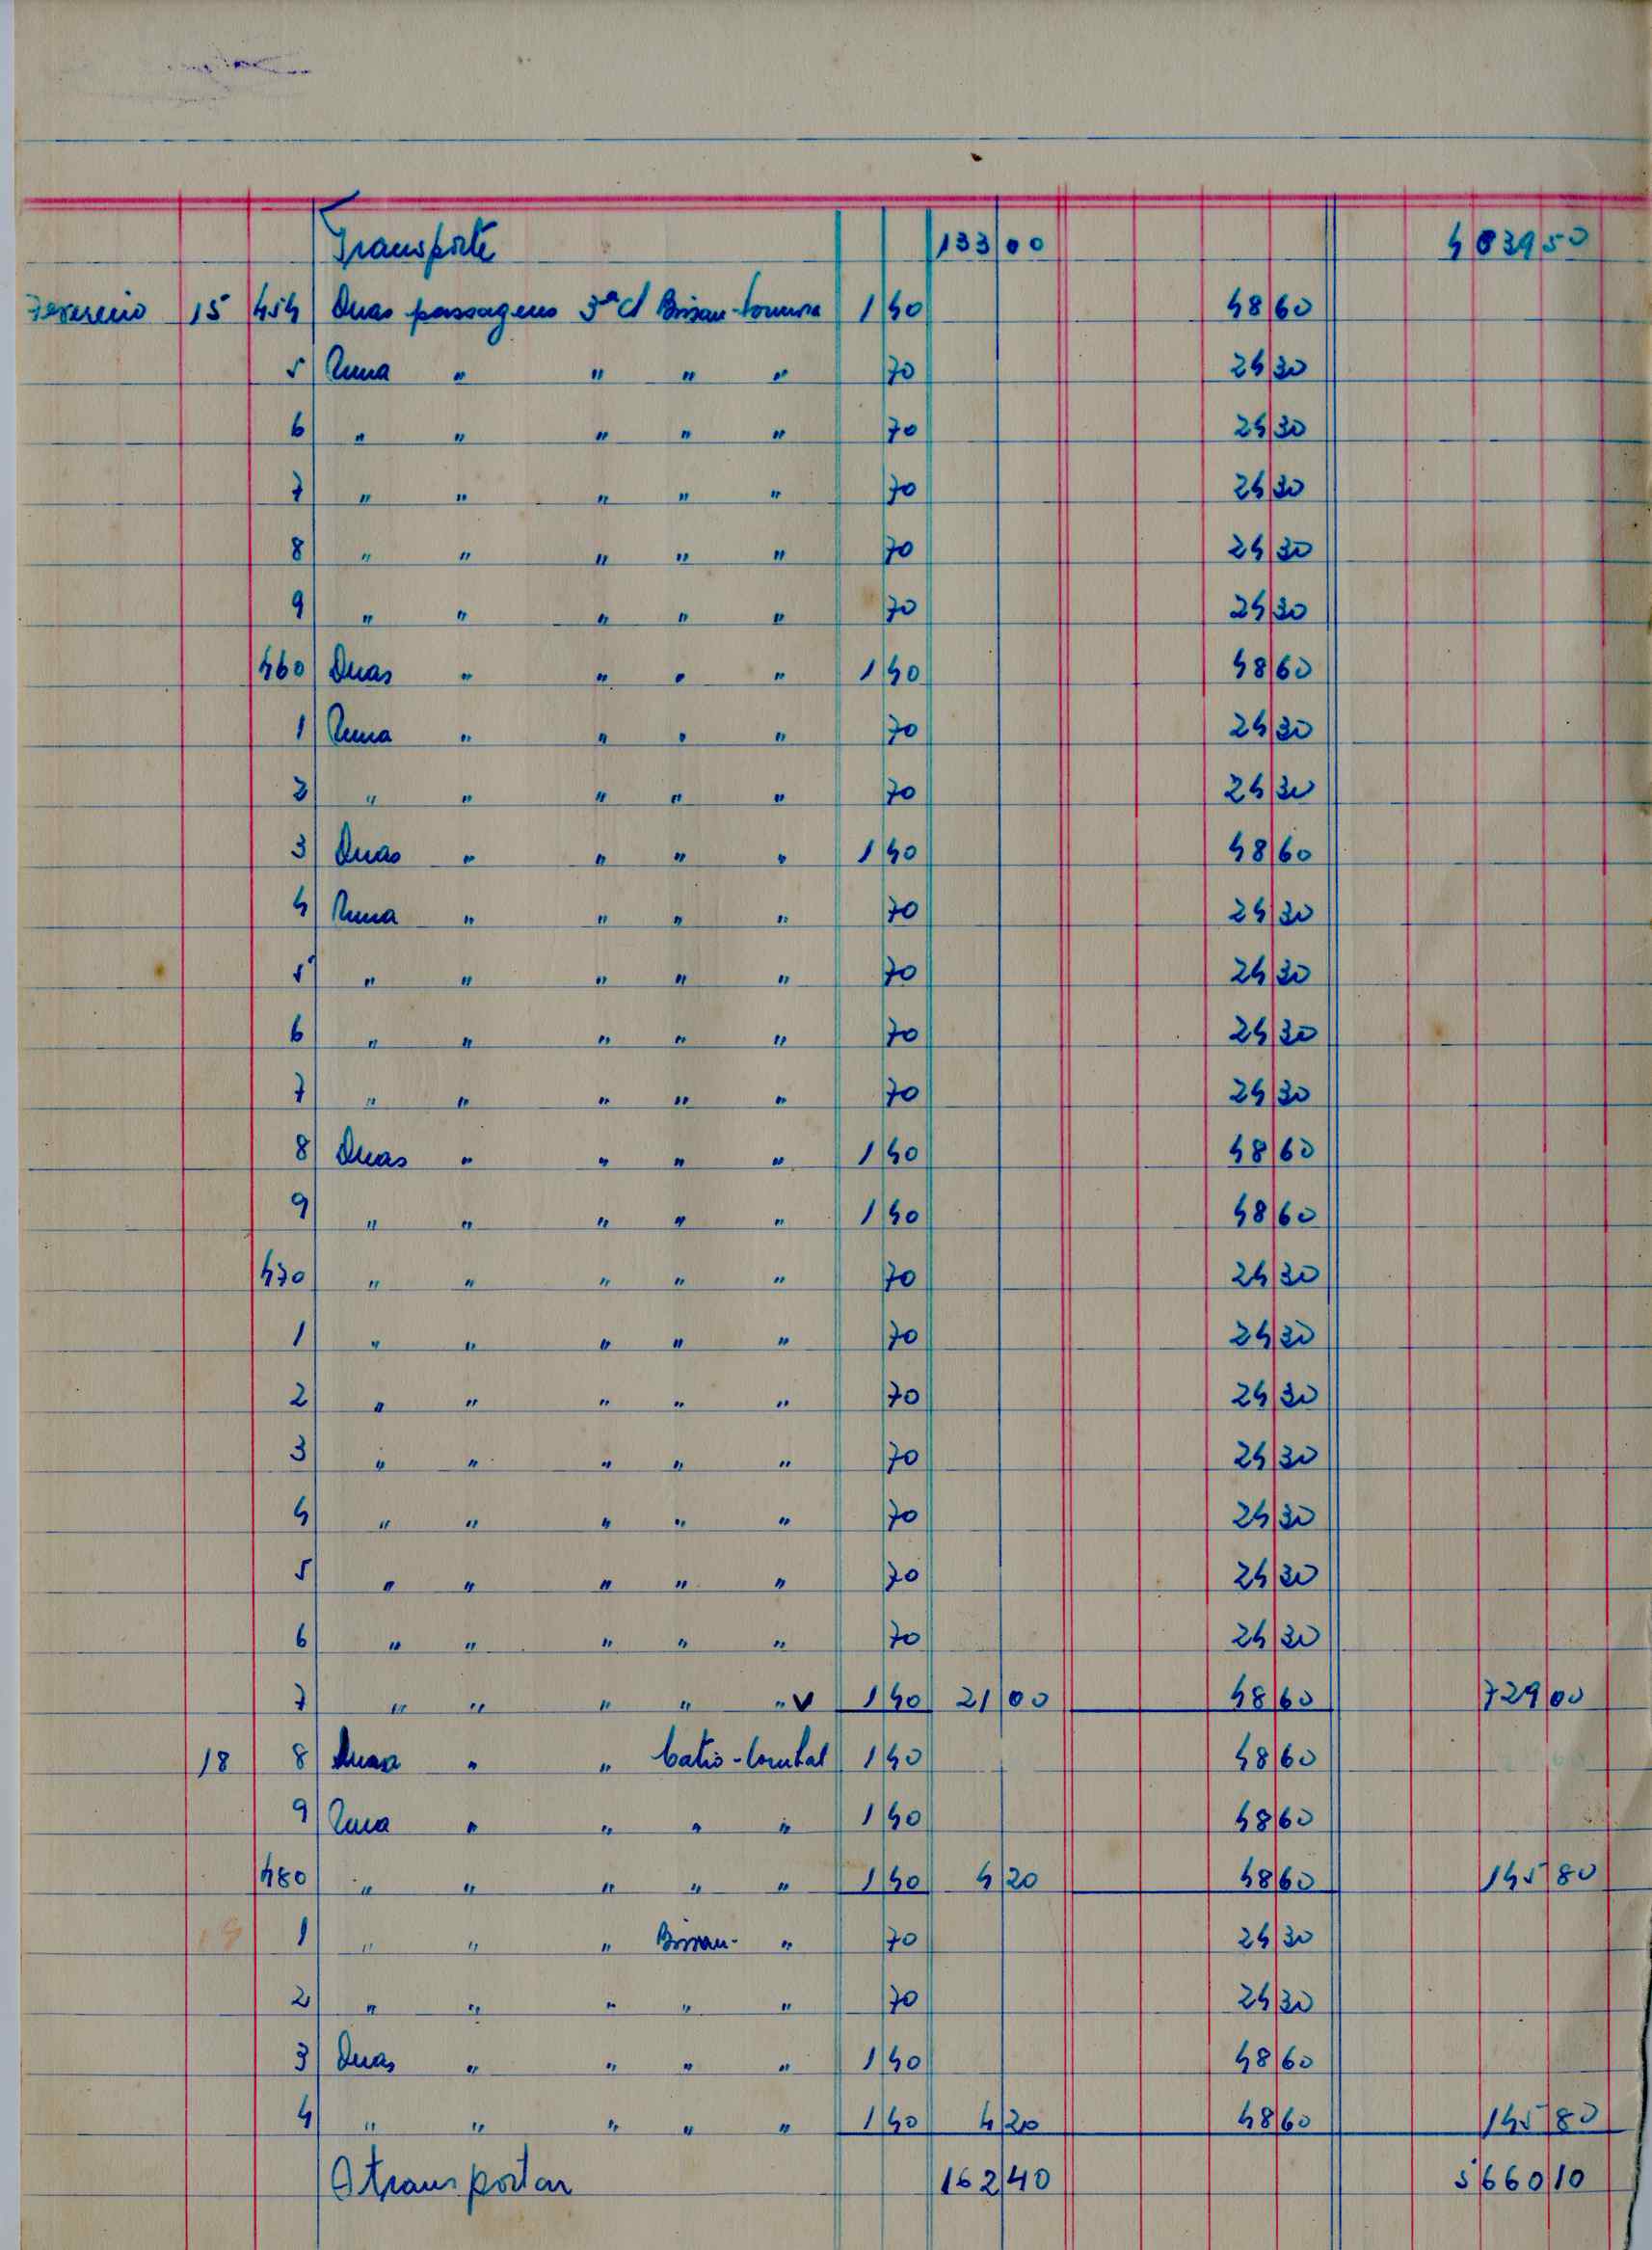 Transporte 133 00 4 639 50
Fevereiro 15 454 Duas passagens 3ª cl Bissau- 1 40 48 60
5 Uma " " " " 70 24 30
6 " " " " " 70 24 30
7 " " " " " 70 24 30
8 " " " " " 70 24 30
9 " " " " " 70 24 30
460 Duas " " " " 1 40 48 60
1 Uma " " " " 70 24 30
2 " " " " " 70 24 30
3 Duas " " " " 1 40 48 60
4 Uma " " " " 70 24 30
5 " " " " " 70 24 30
6 " " " " " 70 24 30
7 " " " " " 70 24 30
8 Duas " " " " 1 40 48 60
9 " " " " " 1 40 48 60
470 " " " " " 70 24 30
1 " " " " " 70 24 30
2 " " " " " 70 24 30
3 " " " " " 70 24 30
4 " " " " " 70 24 30
5 " " " " " 70 24 30
6 " " " " " 70 24 30
7 " " " " " v 1 40 21 00 48 60 729 00
18 8 Duas " " Catió- 1 40 48 60
9 Uma " " " " 1 40 48 60
480 " " " " " 1 40 4 20 48 60 145 80
19 1 " " " Bissau- " 70 24 30
2 " " " " " 70 24 30
3 Duas " " " " 1 40 48 60
4 " " " " " 1 40 4 20 48 60 145 80
A transportar 162 40 5 660 10